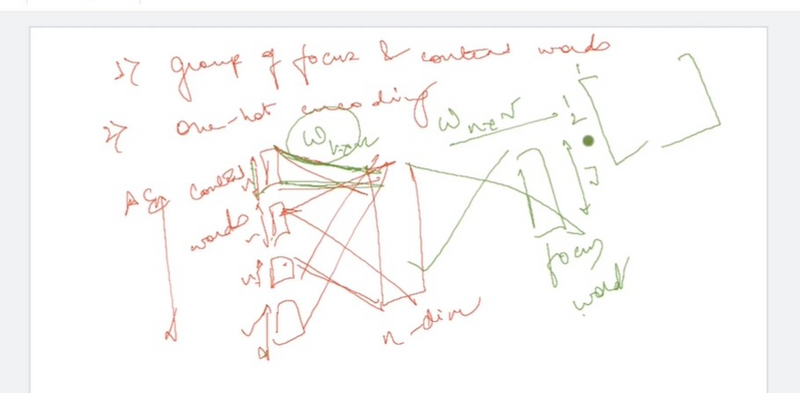 1) group of focus & context words
2) one-hot encoding
W v×n
W n×v
context
words
n-dim
focus
word